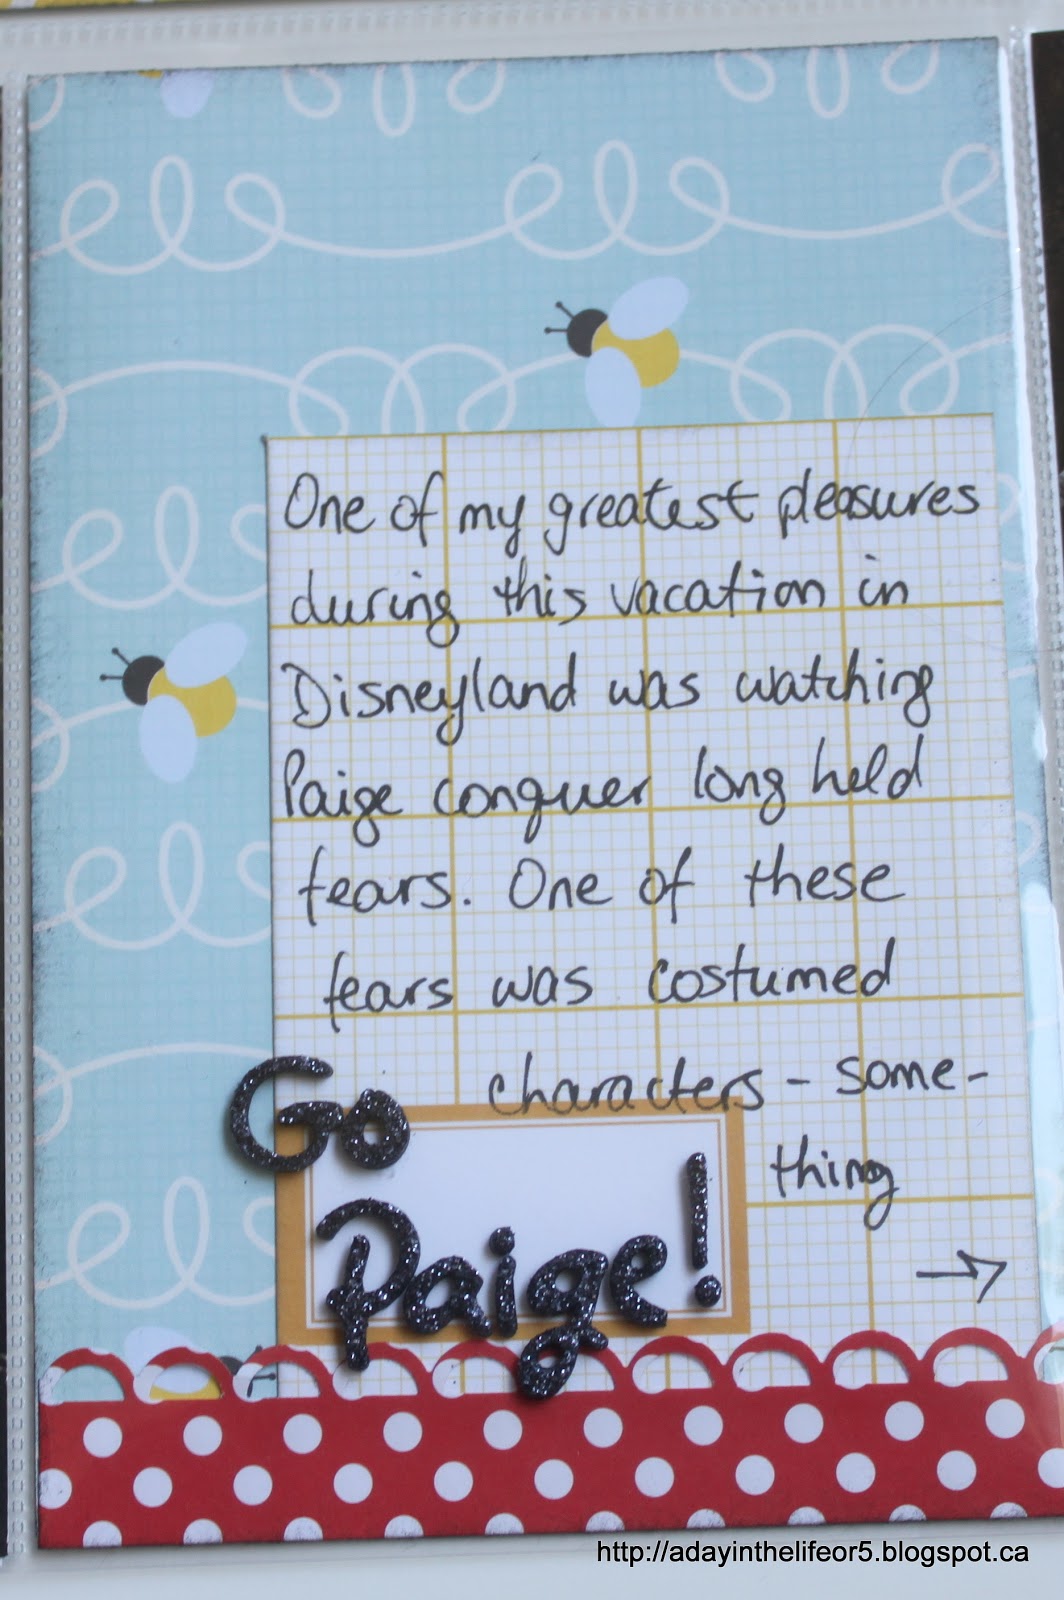 One of my greatest pleasures
during this vacation in
Disneyland was watching
Paige conquer long held
fears. One of these
fears was costumed
characters - some-
thing
→
Go
Paige!
http://adayinthelifeor5.blogspot.ca